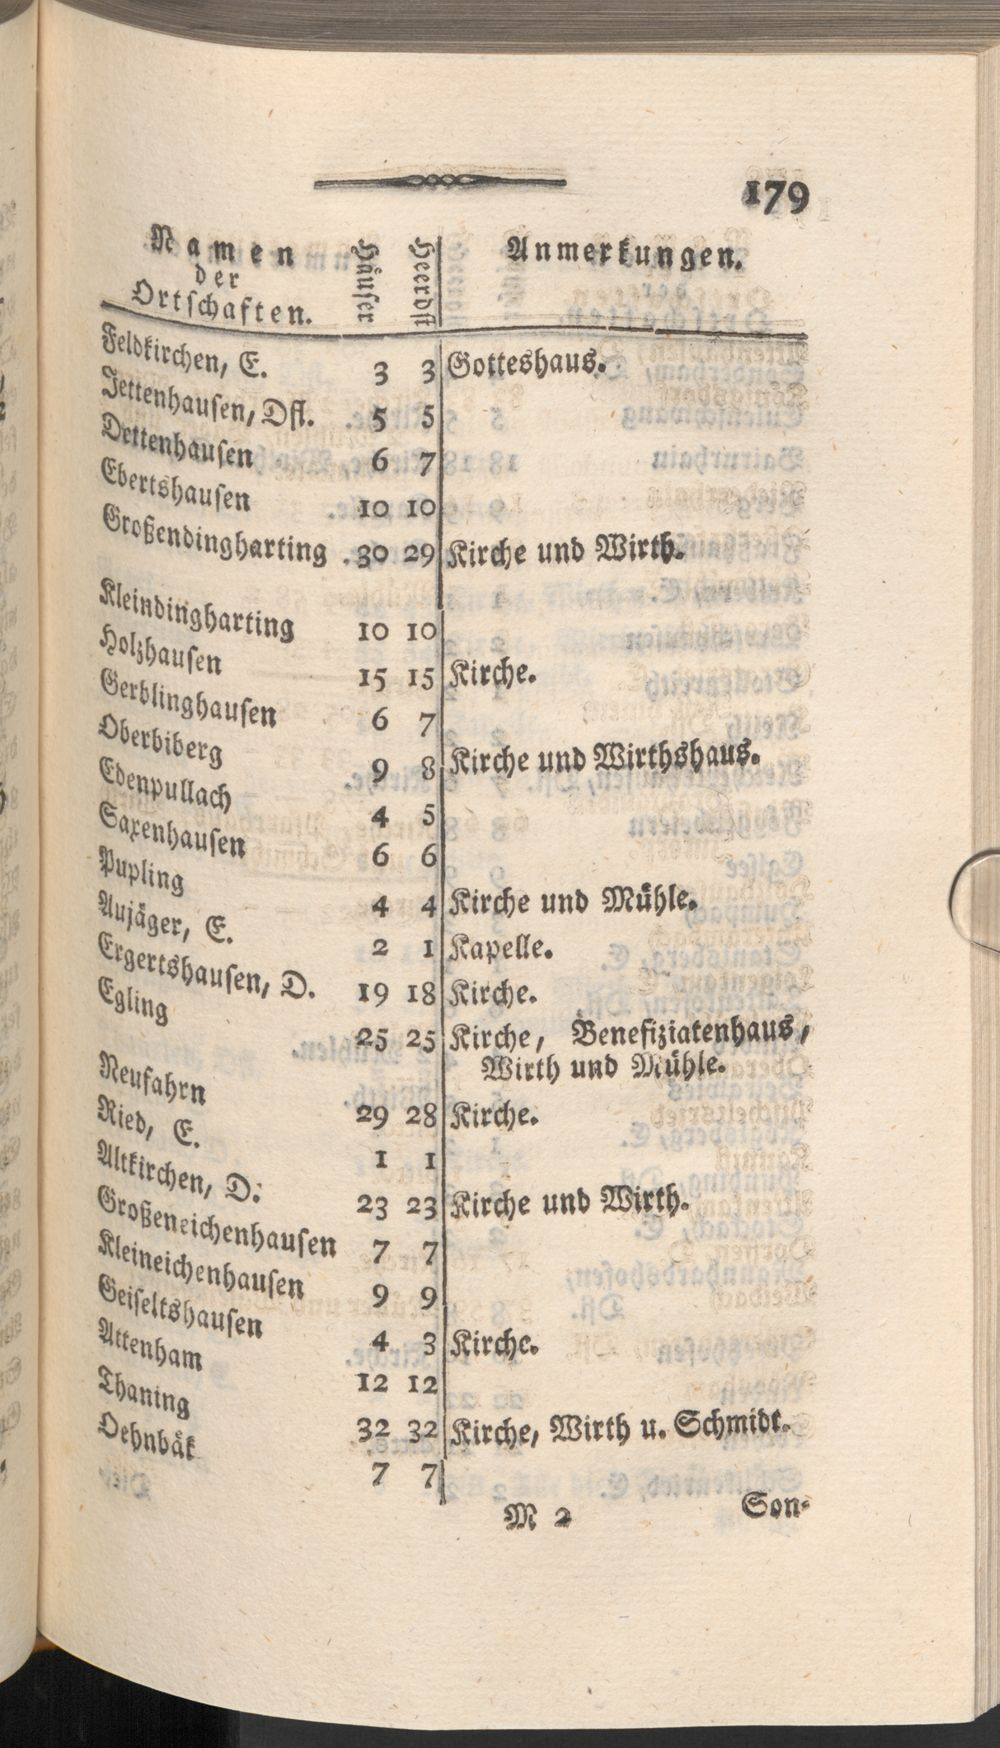 179
Namen
der
Ortschaften. Häuser Heerdst Anmerkungen.
Feldkirchen, E. 3 3 Gotteshaus.
Jettenhausen, Dfl. 5 5
Dettenhausen 6 7
Ebertshausen 10 10
Großendingharting 30 29 Kirche und Wirth.
Kleindingharting 10 10
Holzhausen 15 15 Kirche.
Gerblinghausen 6 7
Oberbiberg 9 8 Kirche und Wirthshaus.
Edenpullach 4 5
Saxenhausen 6 6
Pupling 4 4 Kirche und Mühle.
Aujäger, E. 2 1 Kapelle.
Ergertshausen, D. 19 18 Kirche.
Egling 25 25 Kirche, Benefiziatenhaus,
Wirth und Mühle.
Neufahrn 29 28 Kirche.
Ried, E. 1 1
Altkirchen, D. 23 23 Kirche und Wirth.
Großeneichenhausen 7 7
Kleineichenhausen 9 9
Geiseltshausen 4 3 Kirche.
Attenham 12 12
Thaning 32 32 Kirche, Wirth u. Schmidt.
Oehnbäk 7 7
M 2 Son-